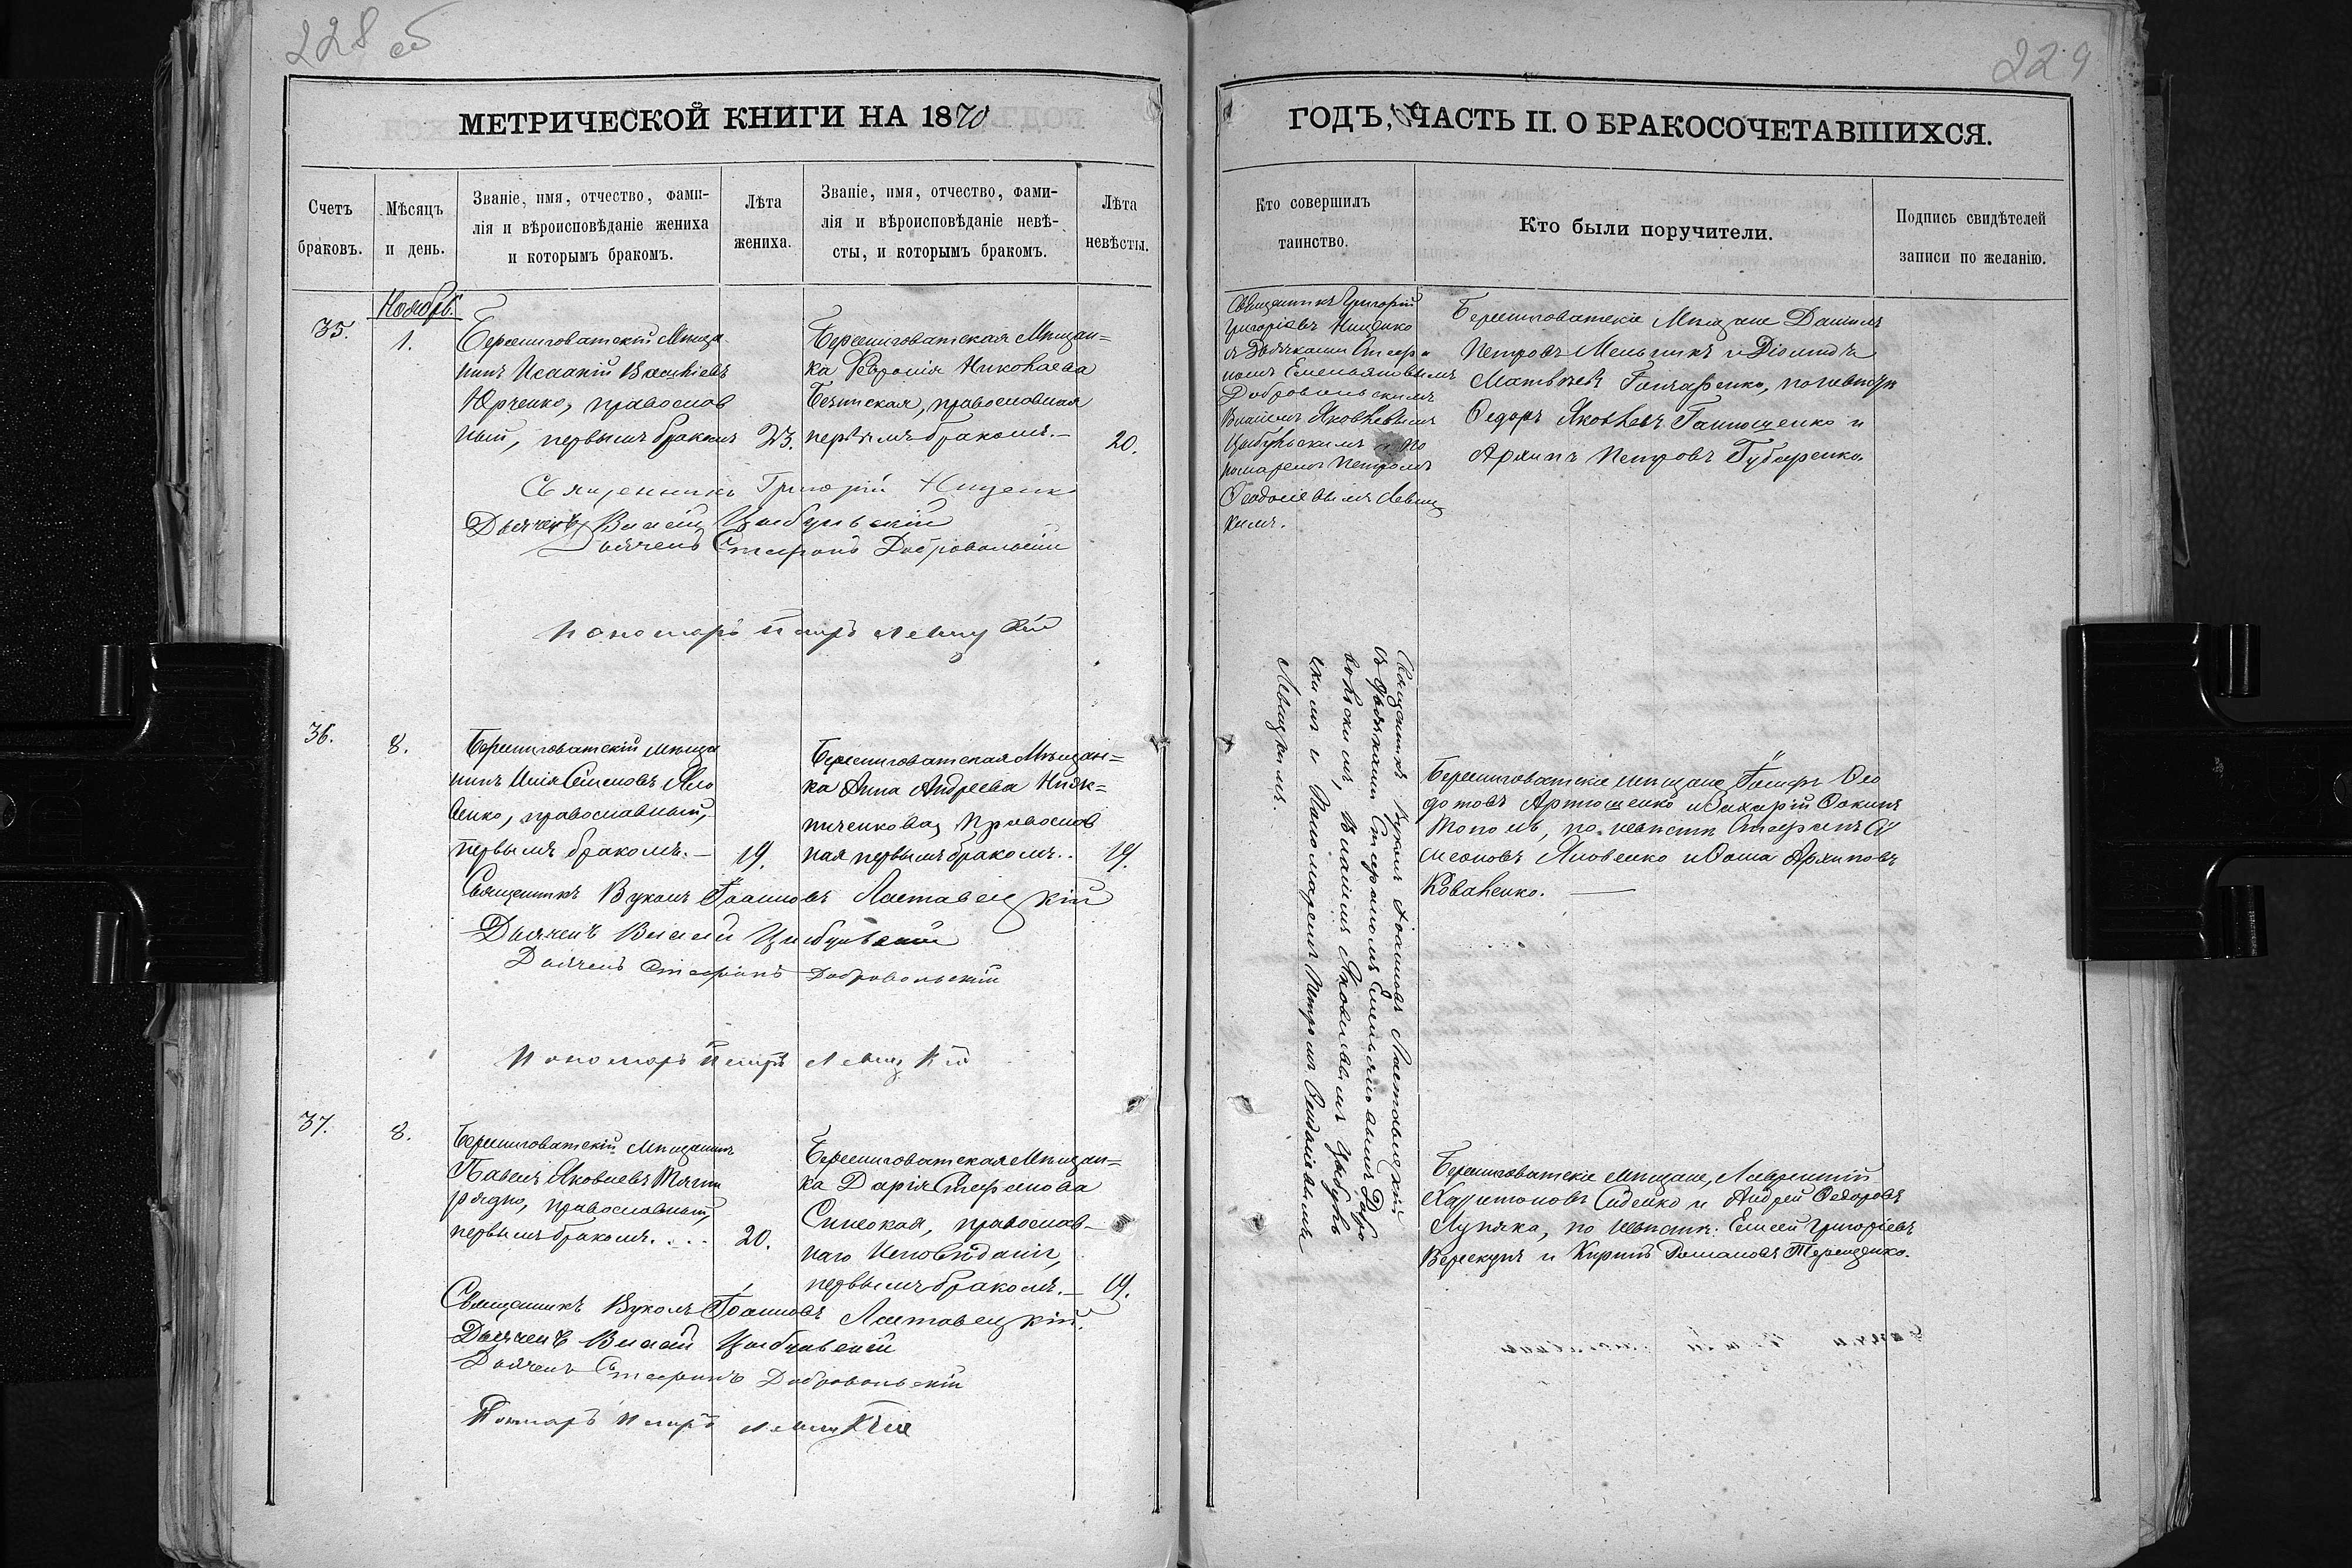 228 об
МЕТРИЧЕСКОЙ КНИГИ НА 1870
Счетъ браковъ.
Мѣсяцъ и день.
Званіе, имя, отчество, фами-
лія и вѣроисповѣданіе жениха
и которымъ бракомъ.
Лѣта жениха.
Званіе, имя, отчество, фами-
лія и вѣроисповѣданіе невѣ-
сты, и которымъ бракомъ.
Лѣта невѣсты.
Ноябрь.
35.
1.
Берешговатскій Мѣща
нинъ Исаакій Васильевъ
Юрченко, православ
ный, первымъ бракомъ
23.
Берешговатская Мѣщан=
ка Февронія Николаева
православная
первымъ бракомъ.-
20.
Священникъ Григорій Нищенко
Дьячекъ Власій Цыбульскій
Дьячекъ Стефанъ Добровольскій
Пономарь Петръ Левицкій
36.
8.
Берешговатскій мѣща
нинъ Илія Семеновъ Яко
венко, православный,
первымъ бракомъ.-
19.
Берешговатская Мѣщан=
ка Анна Андреева Ниж=
ниченкова, Православ
ная первымъ бракомъ..
19.
Священникъ Вуколъ Іоанновъ Ластовецкій
Дьячекъ Власій Цыбульскій
Дьячекъ Стефанъ Добровольскій
Пономарь Петръ Левицкій
37.
8.
Берешговатскій Мѣщанинъ
Павелъ Яковлевъ Тягни
рядно, православный,
первымъ бракомъ....
20.
Берешговатская Мѣщан=
ка Дарія Стефанова
Синеокая, православ-
наго Исповѣданія,
первымъ бракомъ.-
19.
Священникъ Вуколъ Іоанновъ Ластовецкій.
Дьячекъ Власій Цыбульскій
Дьячекъ Стефанъ Добровольскій
Пономарь Петръ Левицкій
229
ГОДЪ, ЧАСТЬ II. О БРАКОСОЧЕТАВШИХСЯ.
Кто совершилъ таинство.
Кто были поручители.
Подпись свидѣтелей
записи по желанію.
Священникъ Григорій
Григоріевъ Нищенко
съ Дьячками Стефа
номъ Емельяновымъ
Добровольскимъ
Власіемъ Яковлевымъ
Цыбульскимъ и По
номаремъ Петромъ
Ѳеодосіевымъ Левиц
кимъ.
Берешговатскіе Мѣщане Даніилъ
Петровъ Мельникъ и Діомидъ
Матвѣевъ Гончаренко, по невѣстѣ
Ѳедоръ Яковлевъ Ганнощенко и
Архипъ Петровъ Губаренко.
Священникъ Вуколъ Іоанновъ Ластовецкій
съ Дьячками Стефаномъ Емельяновымъ Добро
вольскимъ, Власіемъ Яковлевымъ Цыбуль
скимъ и Пономаремъ Петромъ Ѳеодосіевымъ
Левицкимъ.
Берешговатскіе мѣщане Іосифъ Ѳео
дотовъ Артюшенко и Захарій Ѳокинъ
Тополь, по невѣстѣ Стефанъ Си
меоновъ Яковенко и Ѳома Архиповъ
Коваленко.
Берешговатскіе мѣщане, Лаврентій
Харитоновъ Сиденко и Андрей Ѳедоровъ
Лупяка, по невѣстѣ: Елисей Григоріевъ
Верескунъ и Кирилъ Романовъ Терещенко.